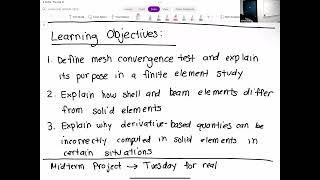 Learning Objectives:
1. Define mesh convergence test and explain
its purpose in a finite element study
2. Explain how shell and beam elements differ
from solid elements
3. Explain why derivative-based quantities can be
incorrectly computed in solid elements in
certain situations
Midterm Project → Tuesday for real